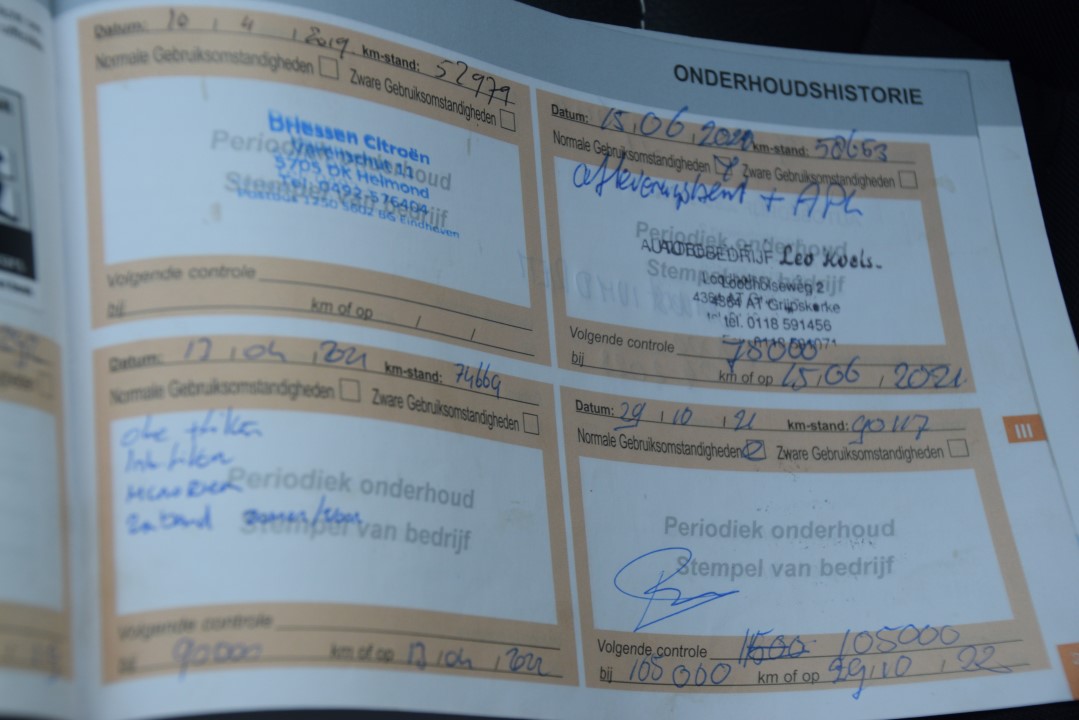 ONDERHOUDSHISTORIE
Datum: 10 / 4 / 2019 km-stand: 52979
Normale Gebruiksomstandigheden Zware Gebruiksomstandigheden
Periodiek onderhoud
Stempel van bedrijf
Driessen Citroën
Varenschut 11
5705 DK Helmond
Tel. 0492-576404
Postbus 1750 5602 BG Eindhoven
Volgende controle
km of op / /
Datum: 15,06,2020 km-stand: 58653
Normale Gebruiksomstandigheden Zware Gebruiksomstandigheden
afleveringsbeurt + APK
Periodiek onderhoud
Stempel van bedrijf
AUTOBEDRIJF Leo Koels.
4364 AT Grijpskerke
tel. 0118 591456
Volgende controle 75000
bij km of op 15,06,2021
Datum: 17,04,2021 km-stand: 74669
Normale Gebruiksomstandigheden Zware Gebruiksomstandigheden
olie filter
Periodiek onderhoud
Stempel van bedrijf
Volgende controle
bij 90000 km of op 17,04,2022
Datum: 29,10,21 km-stand: 90117
Normale Gebruiksomstandigheden Zware Gebruiksomstandigheden
Periodiek onderhoud
Stempel van bedrijf
Volgende controle 105000
bij 105000 km of op 29,10,22
III